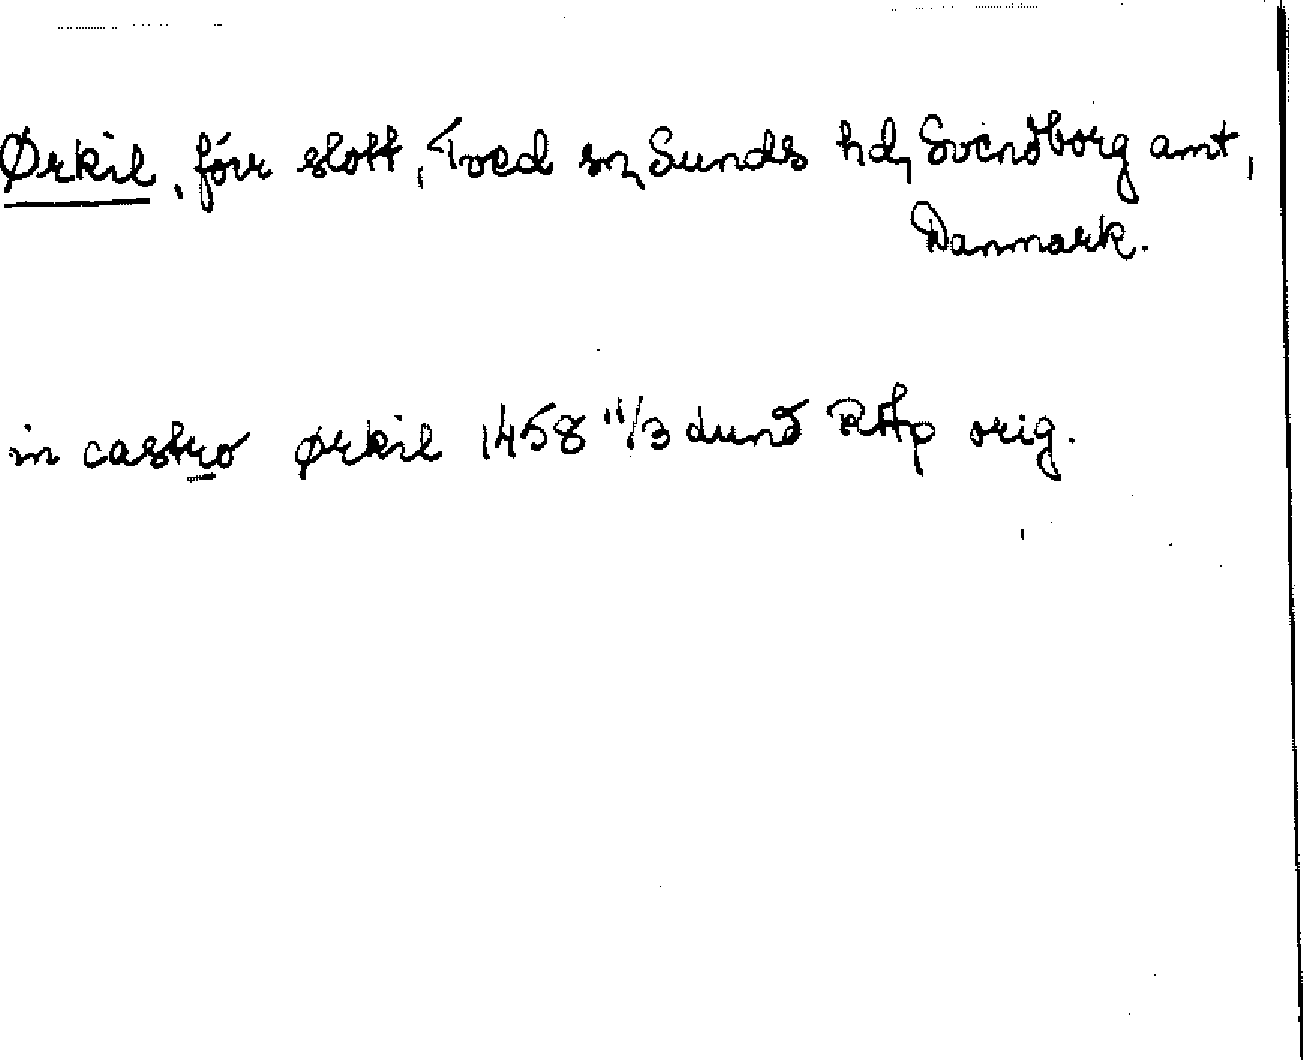 Ørkil, förr slott, Tved sn, Sunds hd, Svendborg amt,
Danmark.
in castro ørkil 1458 11/3 Lund RAp orig.